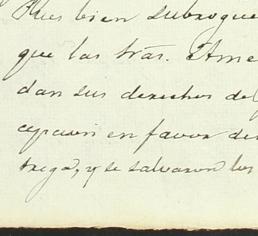 Pues bien subrogue
que las tras. Ame
dan sus derechos de
cepcion en favor de
trega, y se salvaron los